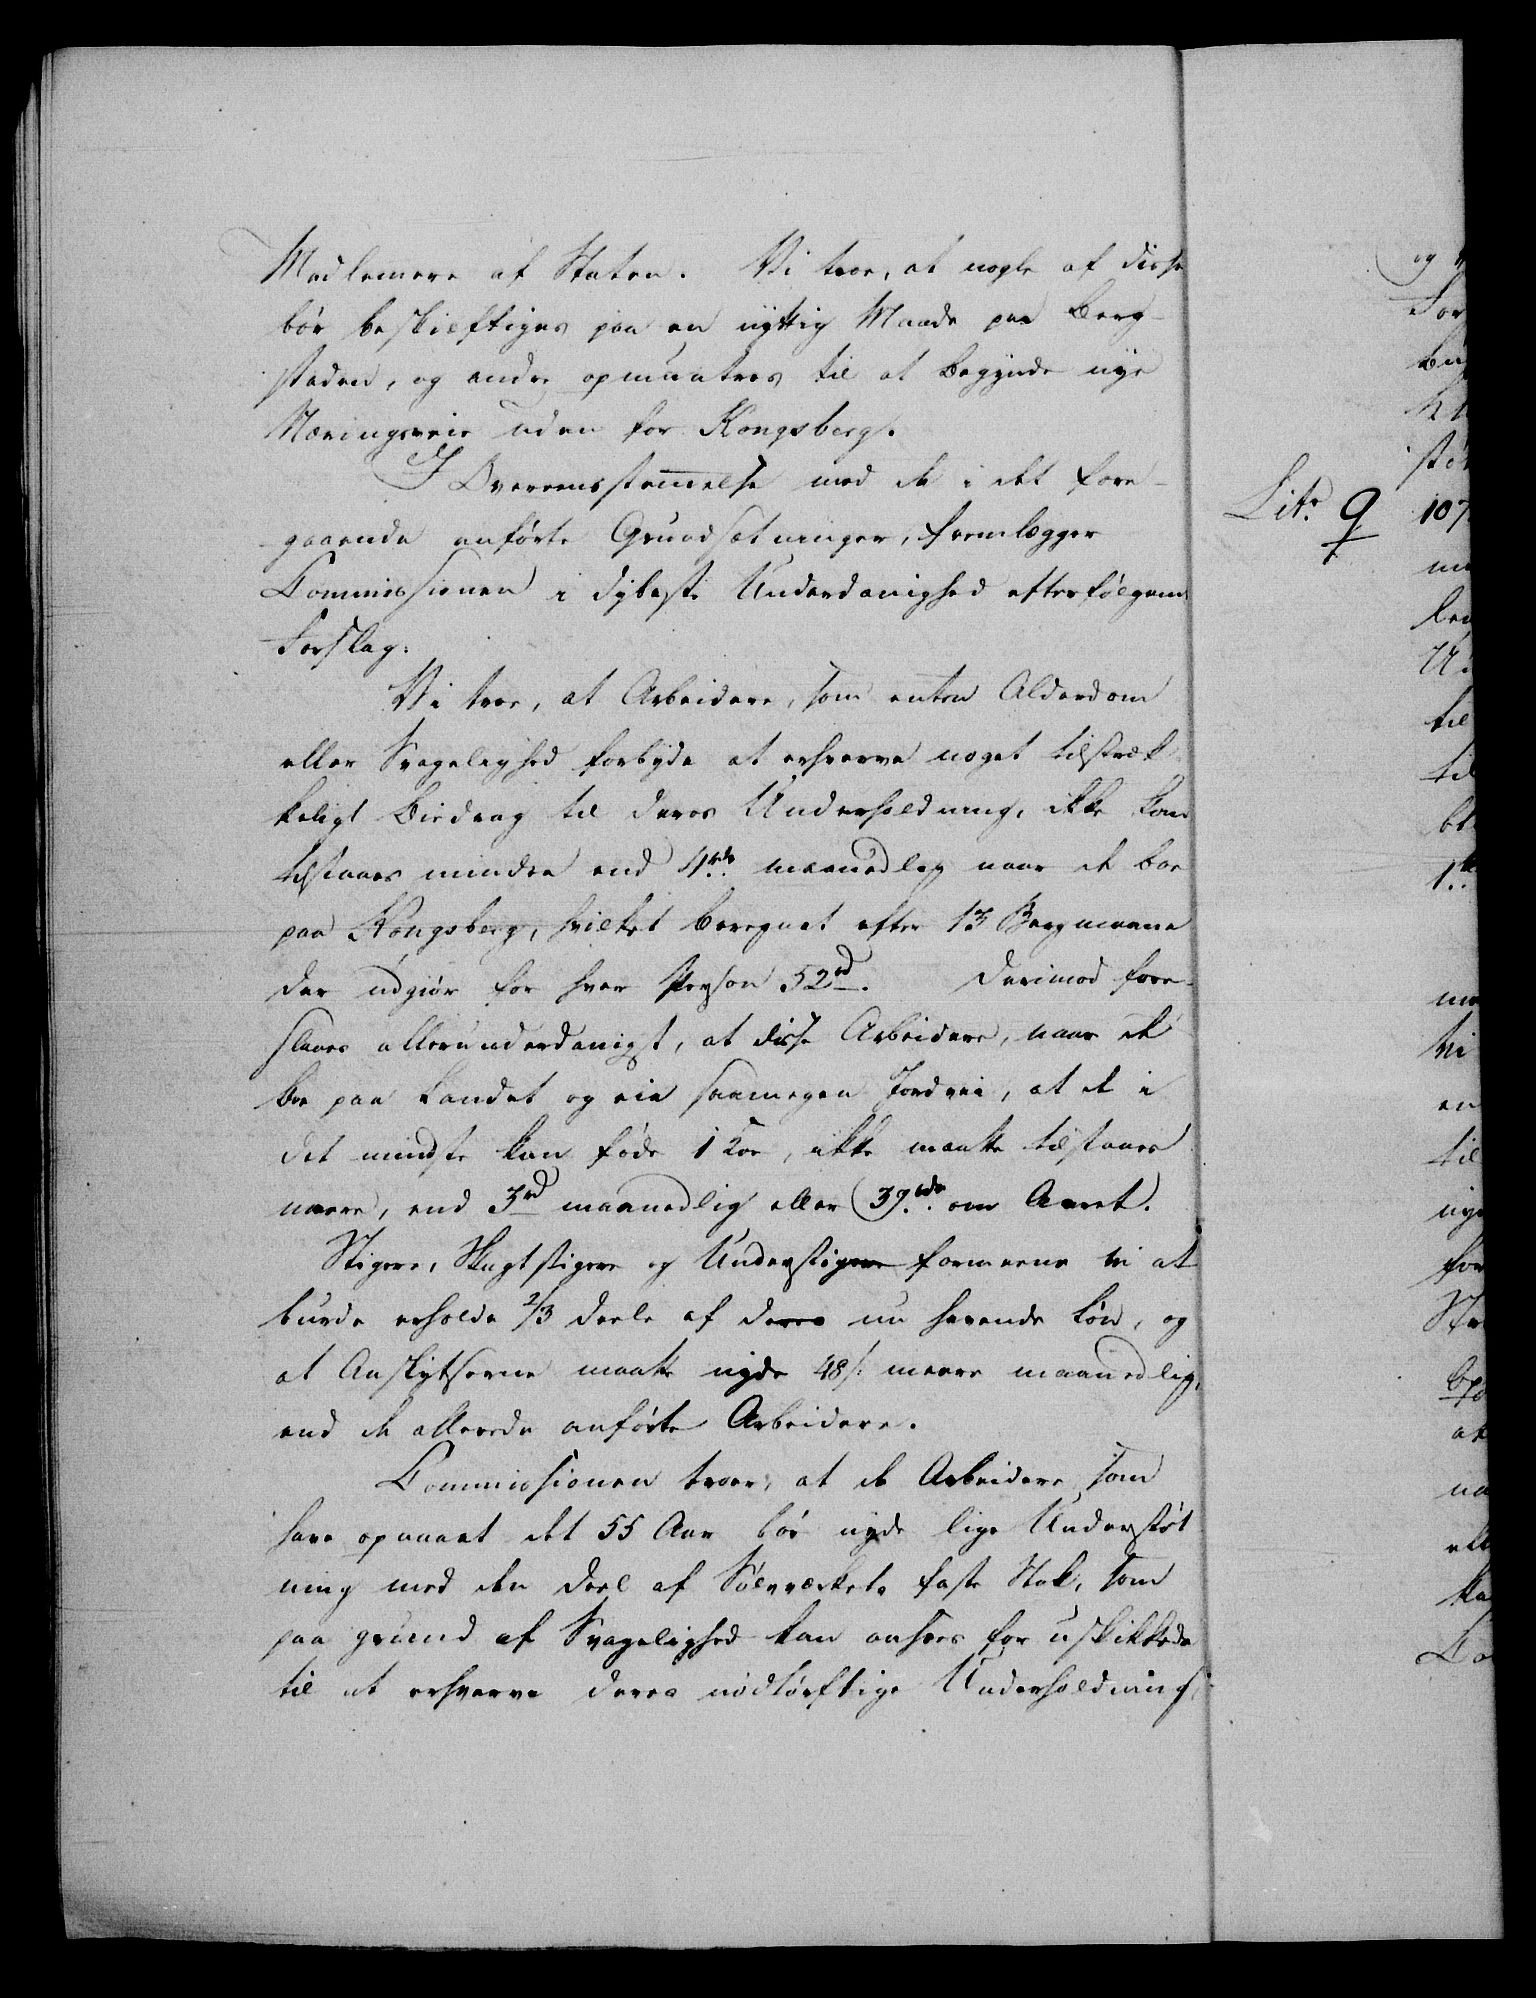 Medlemere af Staten. Vi troe, at nogle af disse
bör beskieftiges paa en nyttig Maade paa Berg-
staden, og andre opmuntres til at begynde nye
Næringsveie uden for Kongsberg.
I Overeensstemelse med de i det fore-
gaaende anförte Grundsætninger, fremlegger
Commissionen i dybeste Underdanighed efterfölgende
Forslag:
Vi troe, at Arbeidere, som enten Alderdom
eller Svagelighed forbyde at erhverve noget tilstræk
keligt Biedrag til deres Underholdning, ikke kan
tilstaaes mindre end 4rdr maanedlig naar de boe
paa Kongsberg, hvilket beregnet efter 13 Bergmaane
der udgiör for hver Person 52rd. Derimod fore-
slaaes allerunderdanigst, at disse Arbeidere, naar de
boe paa Landet og eie saamegen Jordvei, at de i
det mindste kan föde 1 Koe, ikke maatte tilstaaes
meere, end 3rd maanedlig eller 39rdr om Aaret.
Stigere, Skagtstigere og Understigere formeene vi at
burde erholde 2/3 Deele af deres nu havende Lön, og
at Anskytserne maatte nyde 48 s: meere maanedlig,
end de allerede anförte Arbeidere.
Commissionen troer, at de Arbeidere som
have opnaaet det 55 Aar bör nyde lige Understöt
ning med den Deel af Sölvverkets faste Stok, som
paa grund af Svagelighed kan ansees for uskikkede
til at erhverve deres nödtörftige Underholdning,
Litr. q
og
For
stö
107
til
til
1
vi
en
til
nye
for
at